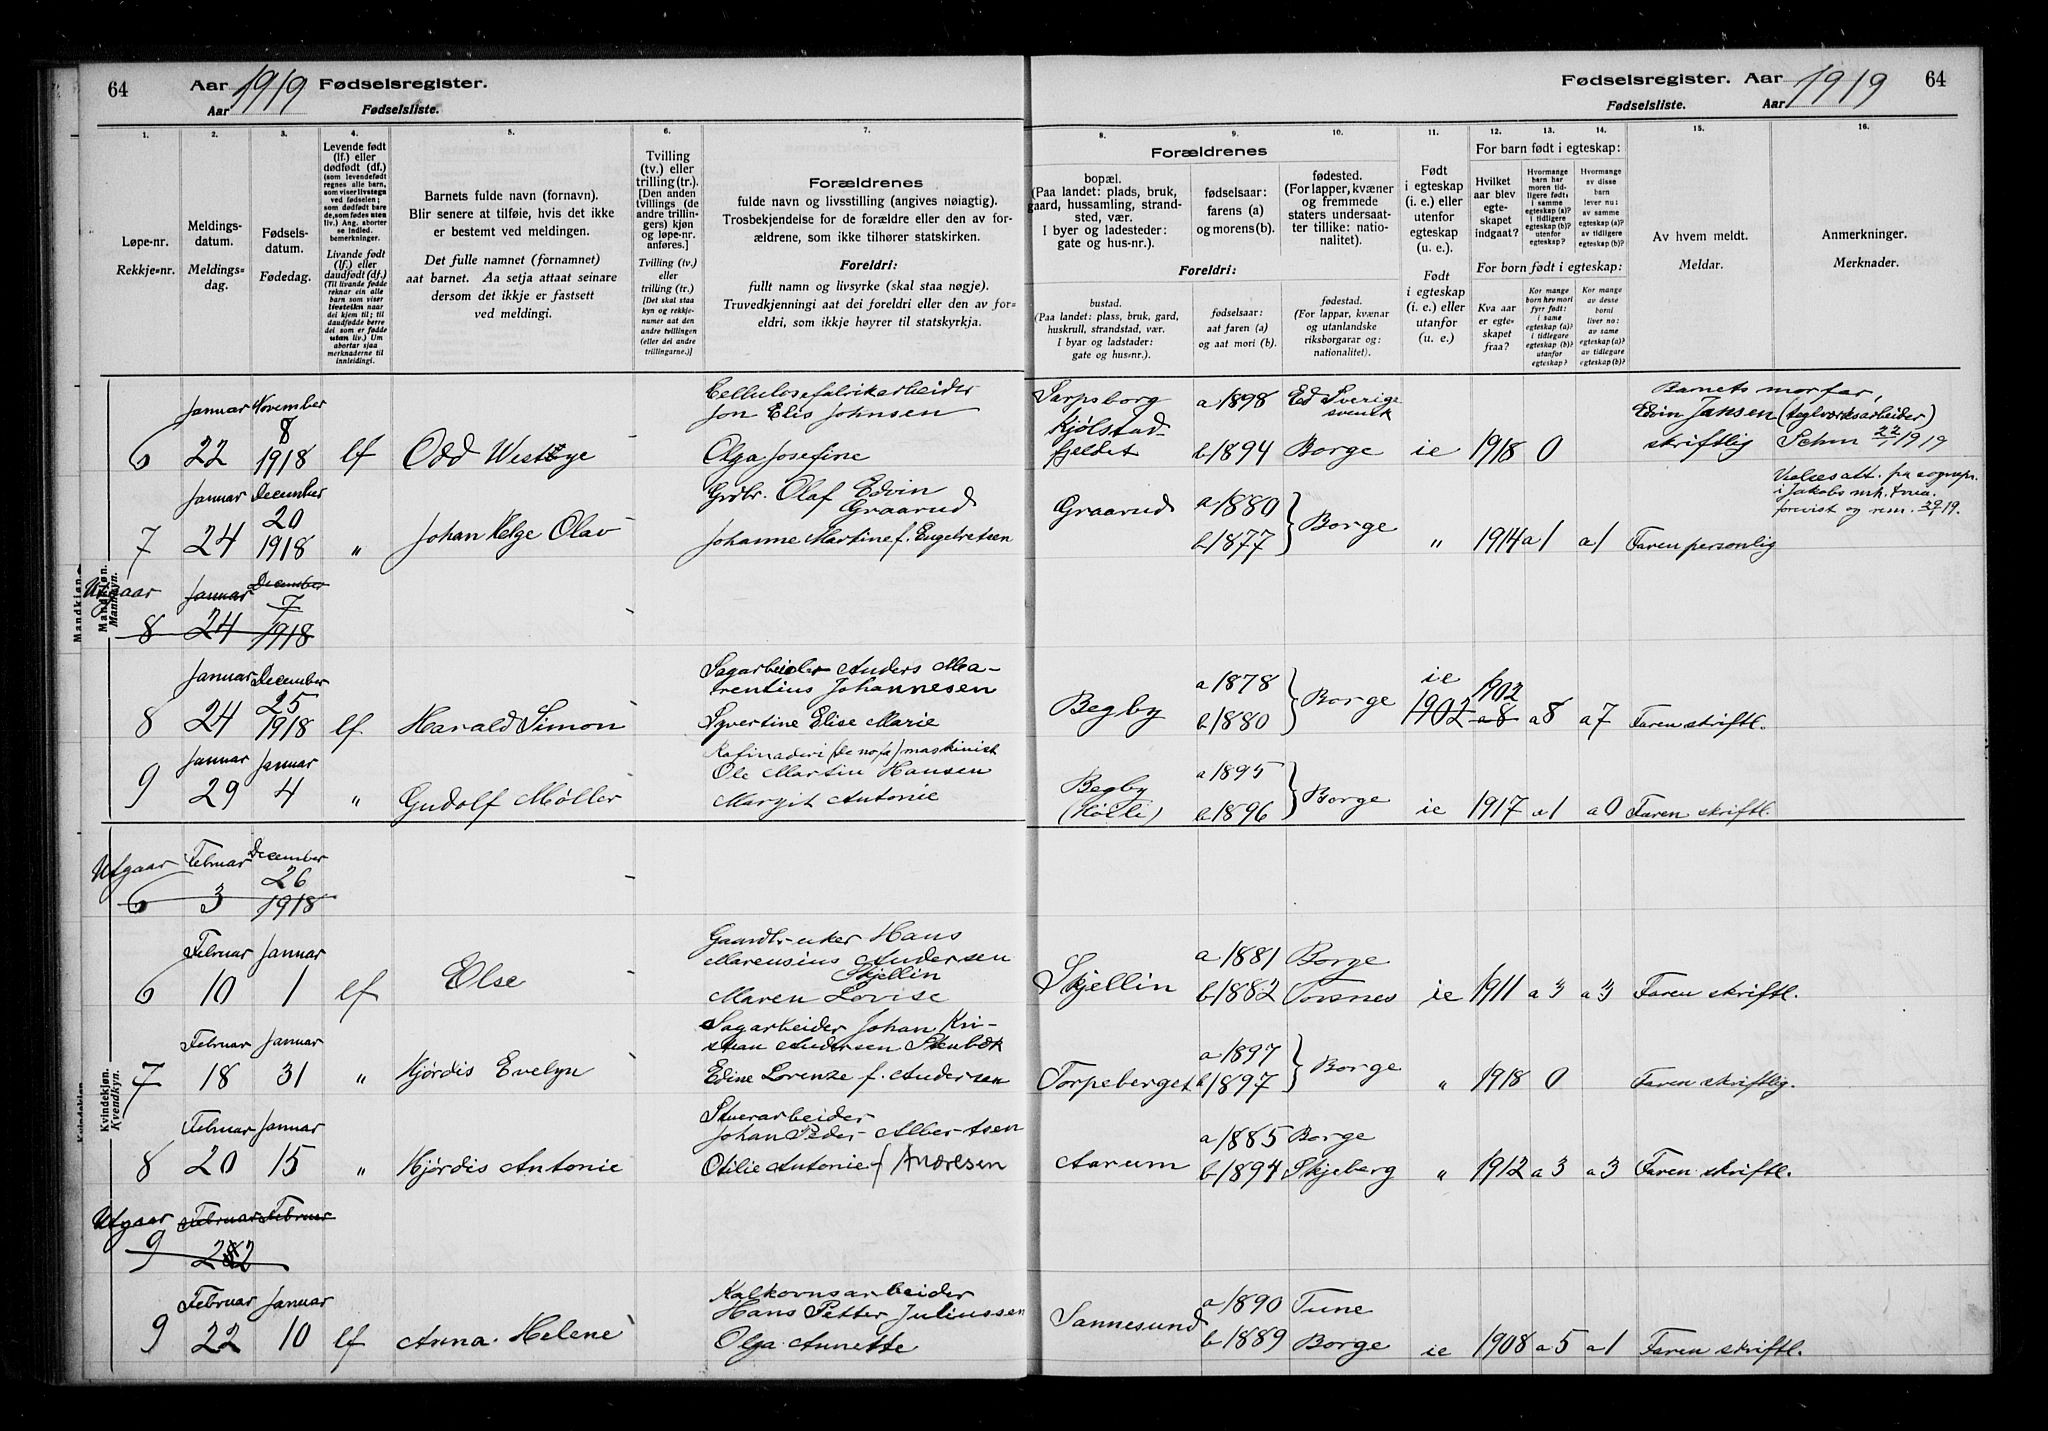 64 Aar 1919 Fødselsregister.
Aar Fødselsliste.
Fødselsregister. Aar 1919 64
Fødselsliste. Aar
1. 2. 3. 4. 5. 6. 7. 8. 9. 10. 11. 12. 13. 14. 15. 16.
Løpe-nr.
Rekkje-nr.
Meldings-
datum.
Meldings-
dag.
Fødsels-
datum.
Fødedag.
Levende født
(lf.) eller
dødfødt (df.)
(som levendefødt
regnes alle barn,
som viser livstegn
ved fødselen;
som dødfødt bare
de, som fødes uten
liv.) Ang. aborter
se indled.
bemerkninger.
Livande fødd
(lf.) eller
daudfødt (df.)
Barnets fulde navn (fornavn).
Blir senere at tilføie, hvis det ikke
er bestemt ved meldingen.
Det fulle namnet (fornamnet)
aat barnet. Aa setja attaat seinare
dersom det ikkje er fastsett
ved meldingi.
Tvilling
(tv.) eller
trilling (tr.).
[Den anden
tvillings (de
andre trillin-
gers) kjøn
og løpe-nr.
anføres.]
Tvilling (tv.)
eller
trilling (tr.)
[Det skal staa
kyn og rekkje-
numer aat den
andre tvillingen
(eller dei andre
trillingarne.)]
Forældrenes
fulde navn og livsstilling (angives nøiagtig).
Trosbekjendelse for de forældre eller den av for-
ældrene, som ikke tilhører statskirken.
Foreldri:
fullt namn og livsyrke (skal staa nøgje).
Truvedkjenningi aat dei foreldri eller den av for-
eldri, som ikkje høyrer til statskyrkja.
Forældrenes
bopæl.
(Paa landet: plads, bruk,
gaard, hussamling, strand-
sted, vær.
I byer og ladesteder:
gate og hus-nr.).
fødselsaar:
farens (a)
og morens (b).
fødested.
(For lapper, kvæner
og fremmede
staters undersaat-
ter tillike: natio-
nalitet).
Foreldri:
bustad.
(Paa landet: plass, bruk, gard,
huskrull, strandstad, vær.
I byar og ladstader:
gate og hus-nr.).
fødselsaar:
aat faren (a)
og aat mori (b).
fødestad.
(For lappar, kvænar
og utanlandske
riksborgarar og:
nationalitet).
Født
i egteskap
(i. e.) eller
utenfor
egteskap
(u. e.).
Født
i egteskap
(i. e.) eller
utanfor
(u. e.)
For barn født i egteskap:
Hvilket
aar blev
egte-
skapet
indgaat?
Hvormange
barn har
moren tid-
ligere født:
i samme
egteskap (a)?
i tidligere
egteskap (b)?
utenfor
egteskap?
Hvormange
av disse
barn
lever nu:
av samme
egteskap (a)?
av tidligere
egteskap (b)?
For born født i egteskap:
Kva aar
er egte-
skapet
fraa?
Kor mange
born hev mori
fyrr født:
i same
egteskap (a)?
i tidlegare
egteskap (b)?
utanfor
egteskap?
Kor mange
av desse
borni
liver no:
av same
egteskap (a)?
av tidlegare
egteskap (b)?
Av hvem meldt.
Meldar.
Anmerkninger.
Merknader.
Mandkjøn.
Mannkyn.
Januar November Cellulosefabrikarbeider Sarpsborg a 1898 Ed Sverige Barnets morfar,
8 Jon Elis Johnsen Kjølstad- svensk Edvin Jansen (teglverksarbeider)
6 22 1918 lf Odd Westbye Olga Josefine fjeldet b 1894 Borge ie 1918 0 skriftlig
Januar December Grdbr. Olaf Edvin Graarud a 1880
20 Graarud
7 24 1918 " Johan Helge Olav Johanne Martine f. Engebretsen b 1877 Borge " 1914 a 1 a 1 Faren personlig
Utgaar Januar December
7
8 24 1918
Januar December Sagarbeider Anders Ma- a 1878 ie 1902
25 rentius Johannesen Begby Borge
8 24 1918 lf. Harald Simon Syvertine Elise Marie b 1880 1902 a 8 a 8 a 7 Faren skriftl.
Januar Januar Rafinaderi (De nofa) maskinist a 1895
Ole Martin Hansen Begby
9 29 4 " Gudolf Møller Margit Antonie b 1896 Borge ie 1917 a 1 a 0 Faren skriftl.
Kvindekjøn.
Kvendkyn.
Utgaar Februar December
26
6 3 1918
Februar Januar Gaardbruker Hans a 1881 Borge
Marensius Andersen
Skjellin
6 10 1 lf Else Maren Lovise Skjellin b 1882 Torsnes ie 1911 a 3 a 3 Faren skriftl.
Februar Januar Sagarbeider Johan Kri-
stian Andersen Stenbæk a 1897
7 18 31 " Hjørdis Evelyn Edine Lorenze f. Andersen Torpeberget b 1897 Borge " 1918 0 Faren skriftlig.
Februar Januar Stuerarbeider
Johan Peder Albertsen a 1885 Borge
8 20 15 " Hjørdis Antonie Otilie Antonie f Andresen Aarum b 1894 Skjeberg " 1912 a 3 a 3 Faren skriftl.
Utgaar Februar Februar
9
Februar Januar Kalkovnsarbeider
Hans Petter Juliussen a 1890 Tune
9 22 10 lf Anna Helene Olga Annette Sannesund b 1889 Borge ie 1908 a 5 a 1 Faren skriftl.